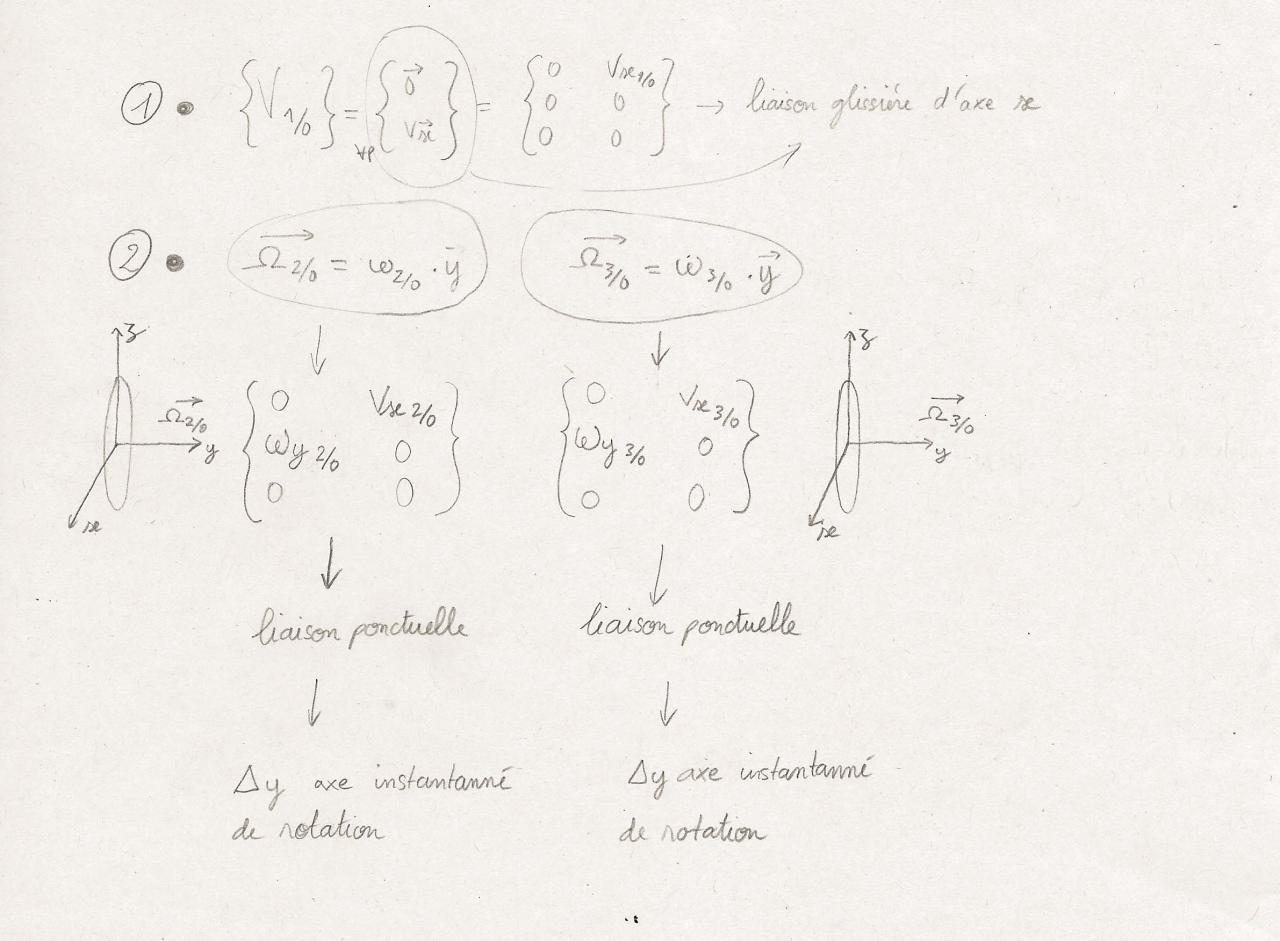 ① • {V 1/0} = ∀P {0⃗ Vx⃗} = {0 Vx1/0 0 0 0 0} → liaison glissiére d'axe x
② • Ω2/0 = ω2/0 . y⃗ Ω3/0 = ω3/0 . y⃗
z Ω2/0 y x {0 Vx 2/0 ωy 2/0 0 0 0} {0 Vx 3/0 ωy 3/0 0 0 0} z Ω3/0 y x
liaison ponctuelle liaison ponctuelle
Δy axe instantanné Δy axe instantanné
de rotation de rotation